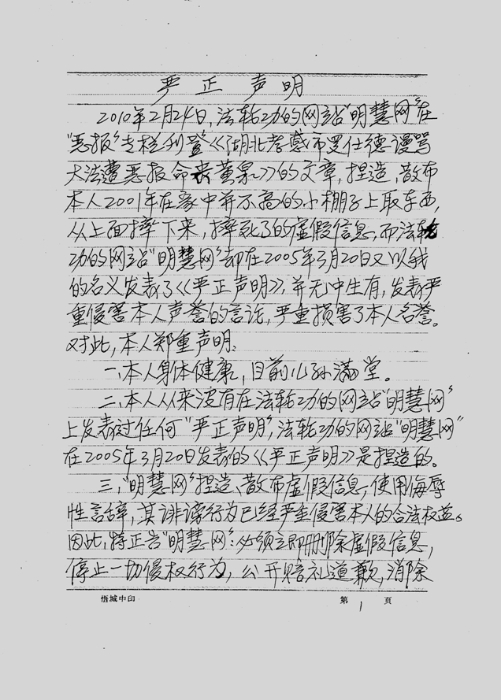 严正声明
2010年2月24日,法轮功的网站"明慧网"在
"恶报"专栏刊登《湖北孝感市罗仕德谩骂
大法遭恶报 命丧黄泉》的文章,捏造、散布
本人2001年在家中并不高的小棚子上取东西,
从上面摔下来,摔死了的虚假信息,而法轮
功的网站"明慧网"却在2005年3月20日又以我
的名义发表了《严正声明》,并无中生有,发表严
重侵害本人声誉的言论,严重损害了本人名誉。
对此,本人郑重声明:
一、本人身体健康,目前儿孙满堂。
二、本人从来没有在法轮功的网站"明慧网"
上发表过任何"严正声明",法轮功的网站"明慧网"
在2005年3月20日发表的《严正声明》是捏造的。
三、"明慧网"捏造、散布虚假信息,使用侮辱
性言辞,其诽谤行为已经严重侵害本人的合法权益。
因此,特正告"明慧网":必须立即删除虚假信息,
停止一切侵权行为,公开赔礼道歉,消除
悟城中印 第 1 页